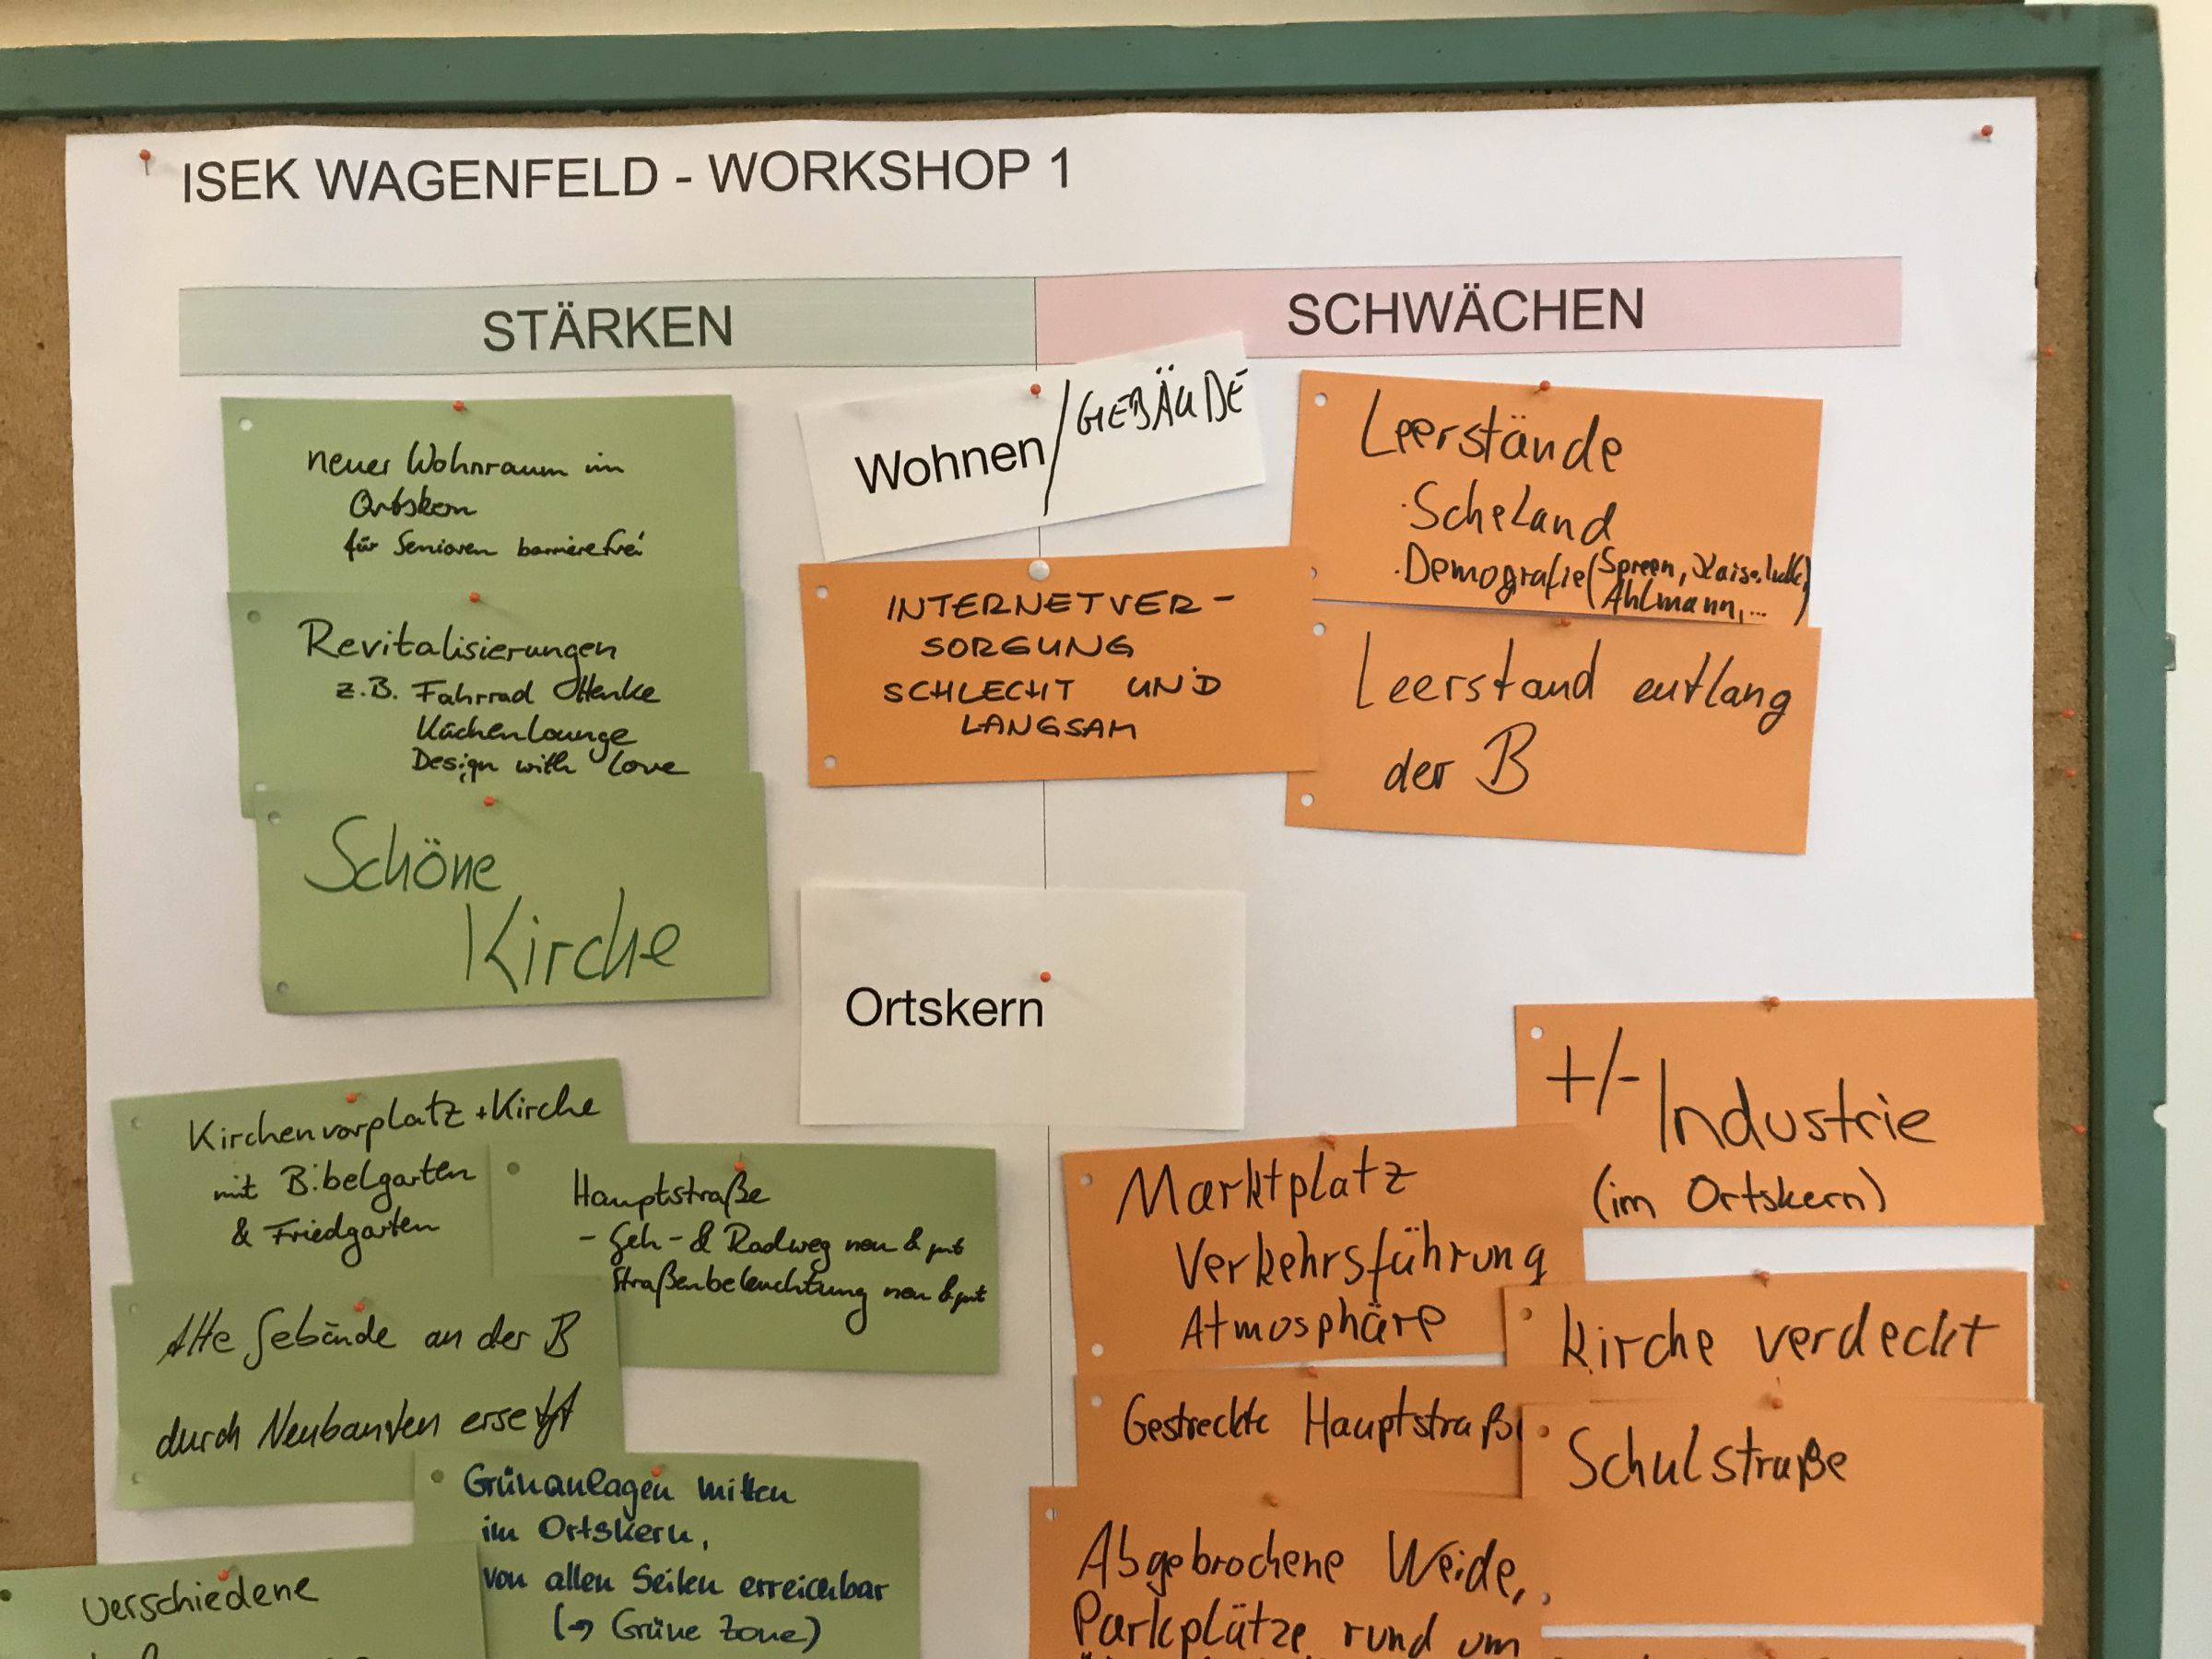 ISEK WAGENFELD - WORKSHOP 1
STÄRKEN
SCHWÄCHEN
neuer Wohnraum im
Ortskern
für Senioren barrierefrei
Revitalisierungen
z.B. Fahrrad Henke
Küchenlounge
Design with love
Schöne
Kirche
Wohnen/GEBÄUDE
INTERNETVER-
SORGUNG
SCHLECHT UND
LANGSAM
Leerstände
·Scheland
·Demografie (Spreen,
Ahlmann,...
Leerstand entlang
der B
Ortskern
Kirchenvorplatz + Kirche
mit Bibelgarten
& Friedgarten
Hauptstraße
- Geh- & Radweg neu & gut
Straßenbeleuchtung neu & gut
Alte Gebäude an der B
durch Neubauten ersetzt
Grünanlagen mitten
im Ortskern,
von allen Seiten erreichbar
(→ Grüne Zone)
verschiedene
+/- Industrie
(im Ortskern)
Marktplatz
Verkehrsführung
Atmosphäre
Kirche verdeckt
Gestreckte Hauptstraße
Schulstraße
Abgebrochene Weide,
Parkplätze rund um